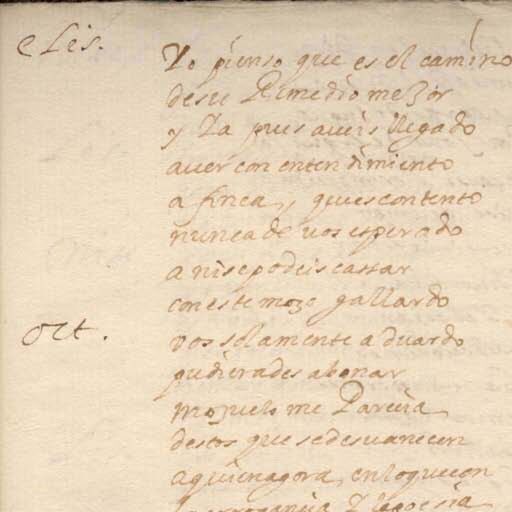 elis. Yo pienso que es el camino
de su Remedio mejor
y Ya pues aveis llegado
a ver con entendimiento
a finea, ques contento
nunca de vos esperado
a nise podeis cassar
con este mozo gallardo
Oct. vos solamente a duardo
pudierades abonar
mozuelo me Parecia
destos que se desvanecen
a quien agora enloquecen
la arrogancia Y la poesia